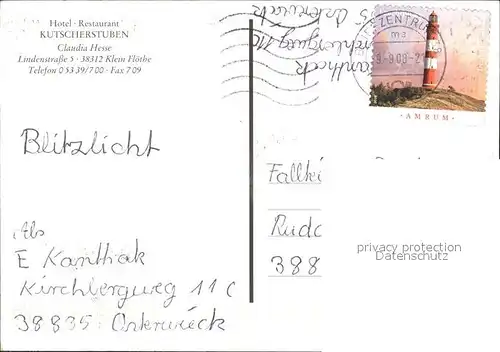 Hotel · Restaurant
KUTSCHERSTUBEN
Claudia Hesse
Lindenstraße 5 · 38312 Klein Flöthe
Telefon 0 53 39/7 00 · Fax 7 09
Blitzlicht
Abs
E Kanthak
Kirchbergweg 11 C
38835 Osterwieck
Kanthak
Kirchbergweg 11c
Osterwieck
EZENTRUM
AMRUM
388
privacy protection
Datenschutz